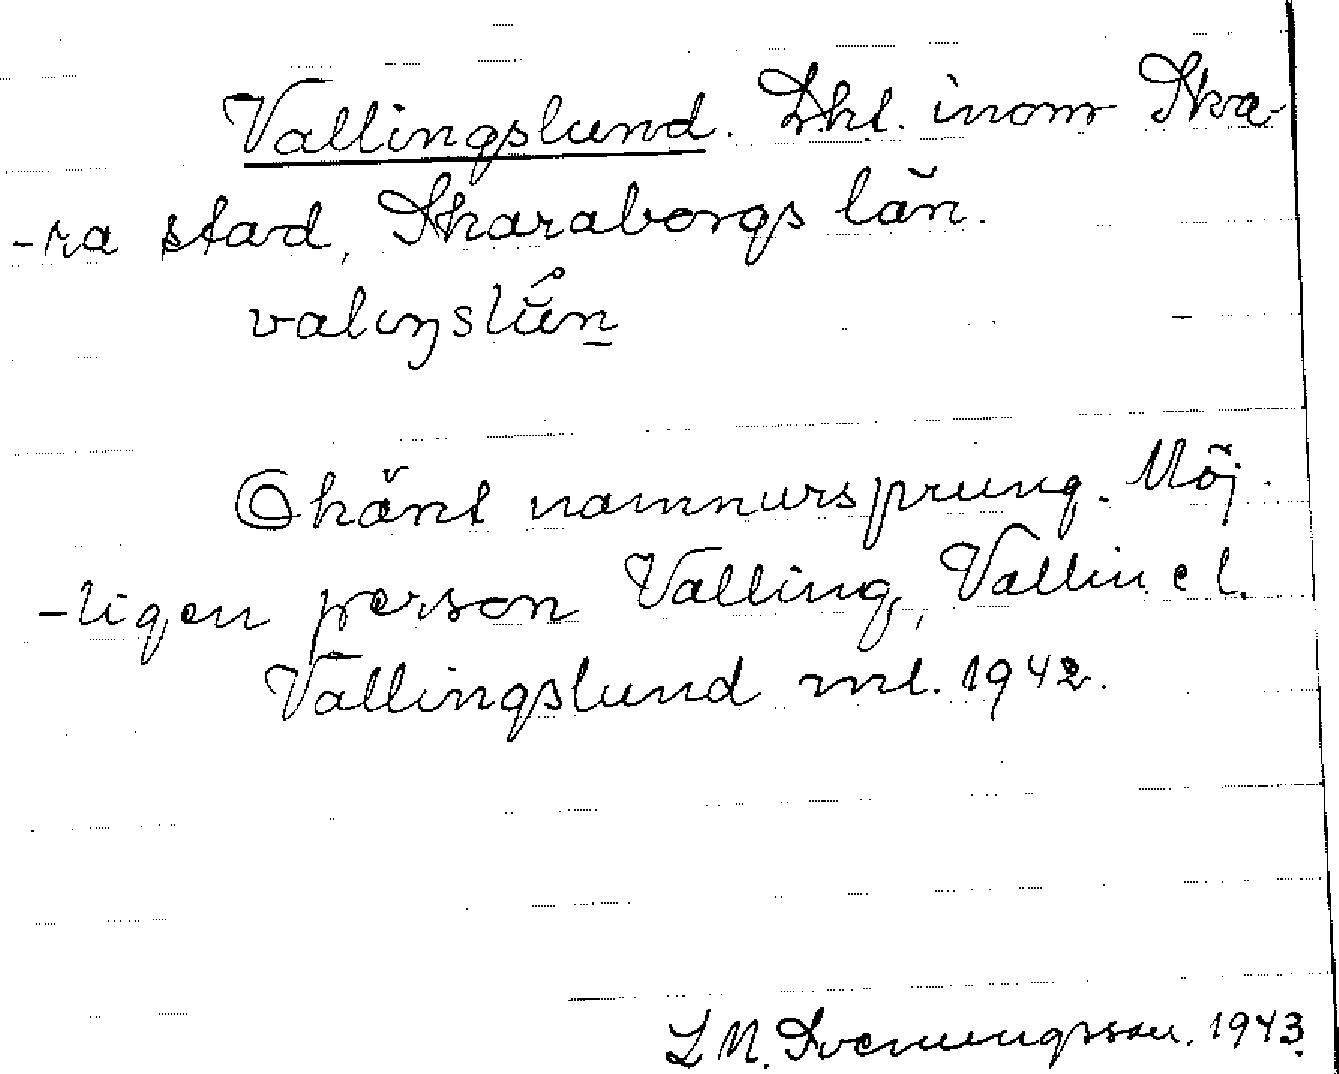 Vallingslund. Lht. inom Ska-
-ra stad, Skaraborgs län.
valiŋslůn
Okänt namnursprung. Möj.
-ligen person Valling, Vallin el.
Vallingslund ml. 1942.
L M. Svenungsson. 1943.